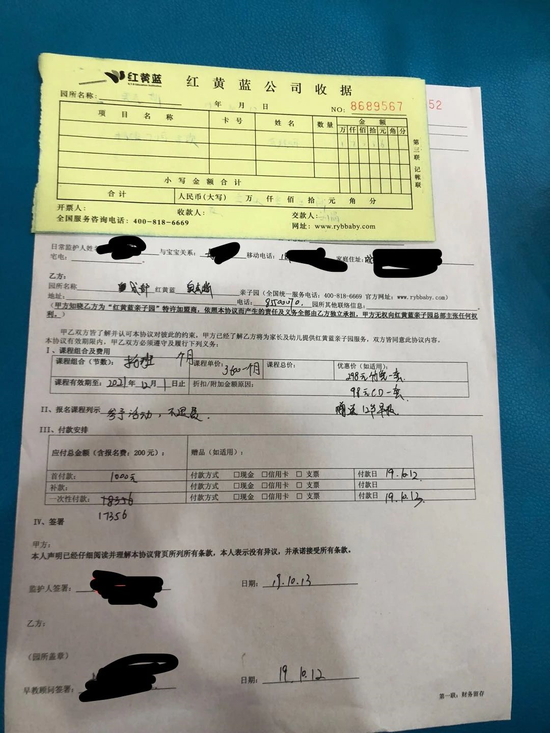 红黄蓝
红黄蓝公司收据
园所名称: 年 月 日 NO: 8689567 52
项目名称 卡号 姓名 数量 金额
万 仟 佰 拾 元 角 分
小写金额合计
合计 人民币(大写) 万 仟 佰 拾 元 角 分
开票人: 收款人: 交款人:
全国服务咨询电话: 400-818-6669 网址: www.rybbaby.com
第三联 记账联
日常监护人姓名 与宝宝关系: 移动电话: 家庭住址:
宅电:
乙方:
园所名称 红黄蓝 亲子园(全国统一服务电话: 400-818-6669 官方网址: www.rybbaby.com)
地址: 电话: 园所其他联络信息:
(甲方知晓乙方为“红黄蓝亲子园”特许加盟商,依照本协议而产生的责任及义务全部由乙方独立承担,甲方无权向红黄蓝亲子园总部主张任何权利。)
甲乙双方皆了解并认可本协议对彼此的约束,甲方已经了解乙方将为家长及幼儿提供红黄蓝亲子园服务,双方皆同意此协议内容。
本协议有效期限内,甲乙双方必须遵守及履行下列义务:
I、课程组合及费用
课程组合(节数): 托班 个月 课程单价: 3600一个月 课程总价: 优惠价(如适用):
298元 一套
课程有效期至: 2021年12月1日止 折扣/附加金额原因: 98元CD一套
II、报名课程列示: 参予活动,不退费 赠送12节早教
III、付款安排
应付总金额(含报名费: 200元) 赠品(如适用):
首付款: 1000元 付款方式 □现金 □信用卡 □支票 付款日 19.10.12
补款: 付款方式 □现金 □信用卡 □支票 付款日
一次性付款: 18356 付款方式 □现金 □信用卡 □支票 付款日 19.10.13
17356
IV、签署
甲方:
本人声明已经仔细阅读并理解本协议背页所列所有条款,本人表示没有异议,并承诺接受所有条款。
监护人签署: 日期: 19.10.13
乙方:
(园所盖章)
早教顾问签署: 日期: 19.10.12
第一联: 财务留存